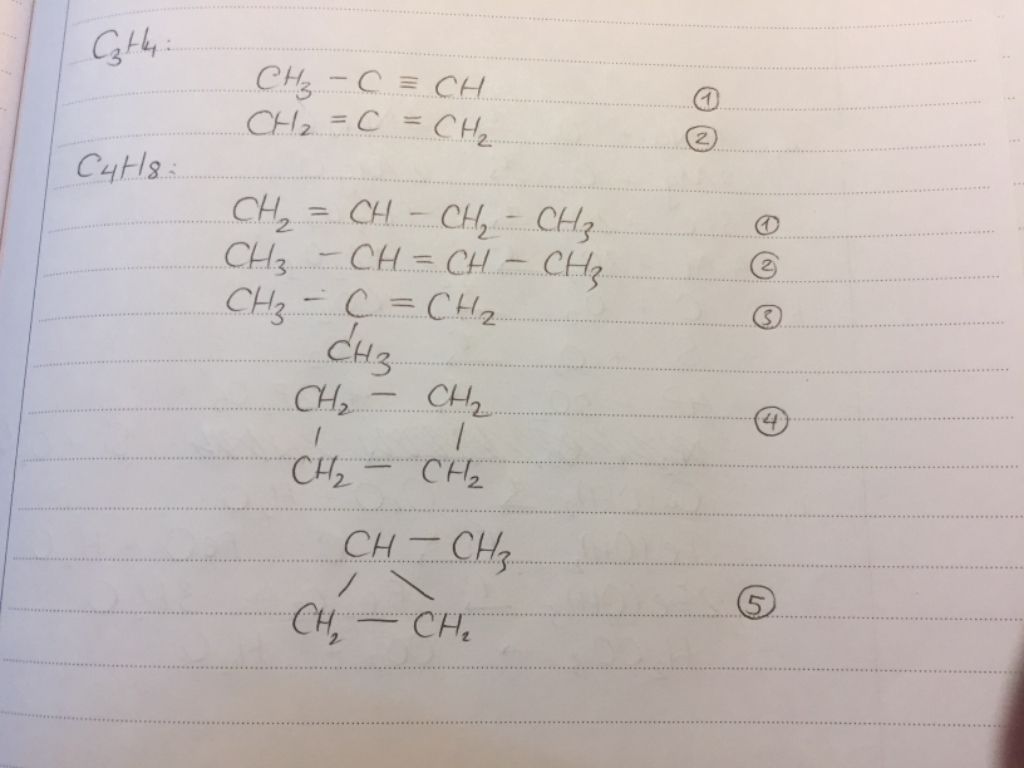 C₃H₄:
CH₃ – C ≡ CH ①
CH₂ = C = CH₂ ②
C₄H₈:
CH₂ = CH – CH₂ – CH₃ ①
CH₃ – CH = CH – CH₃ ②
CH₃ – C = CH₂ ③
CH₃
CH₂ – CH₂ ④
| |
CH₂ – CH₂
CH – CH₃
/ \
CH₂ – CH₂ ⑤